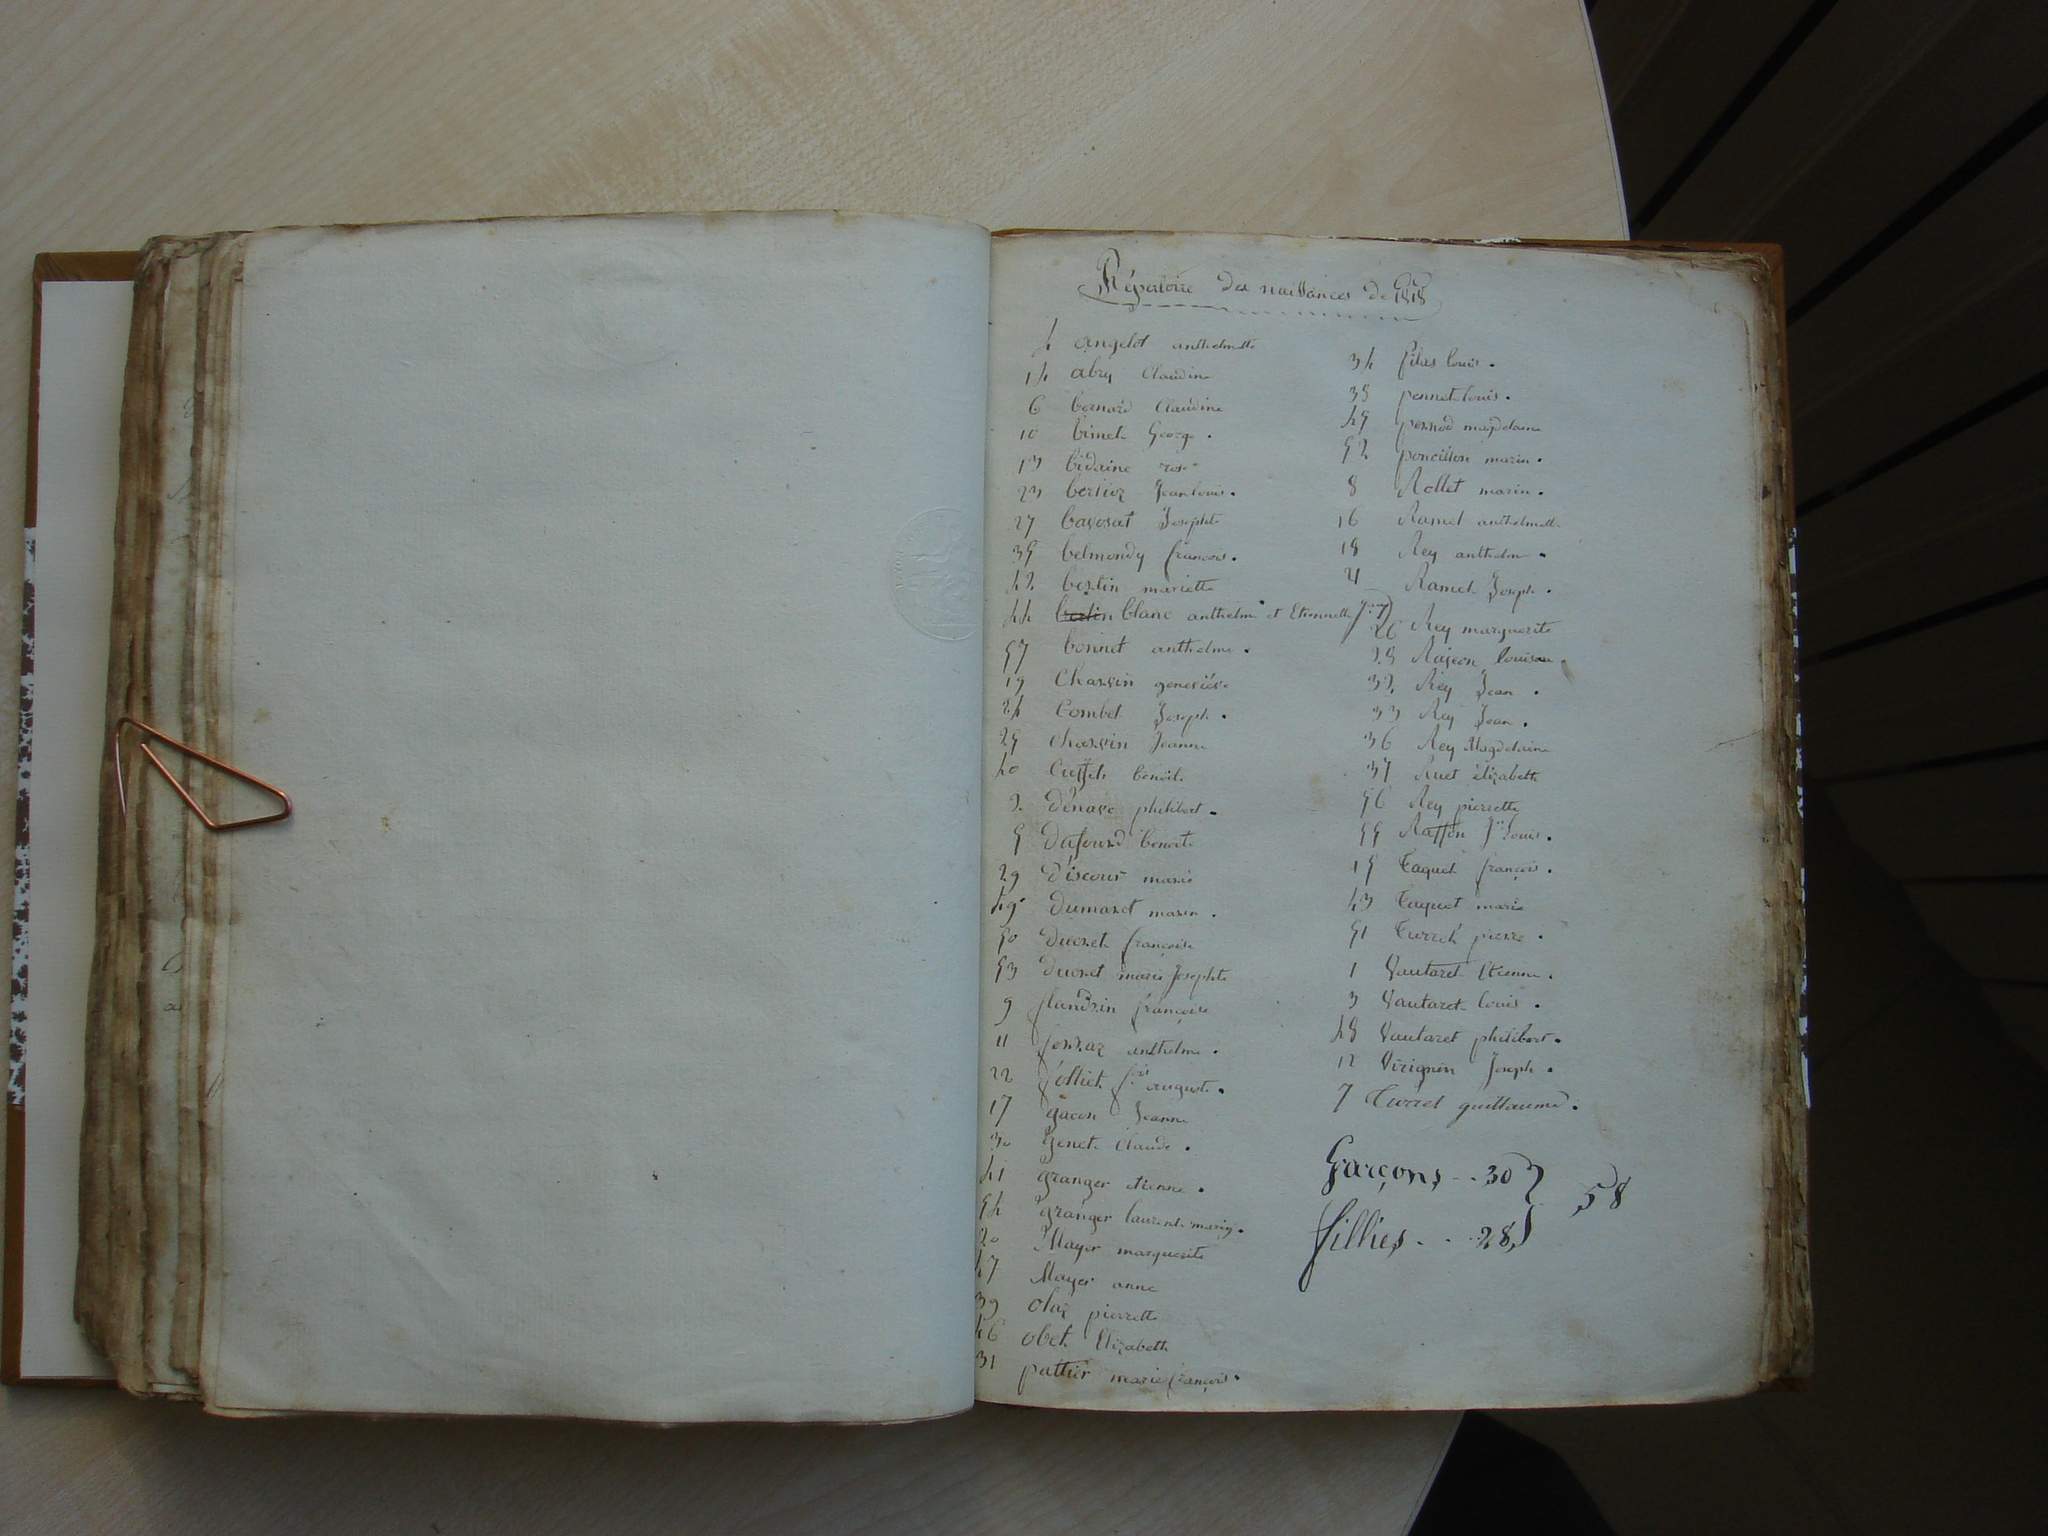 Répertoire des naissances de 1818
4 angelot anthelmette
14 abry Claudine
6 bernard Claudine
10 binet George .
13 bidaine rose
23 berlioz Jean louis .
27 bavosat Josephte
35 belmondy francois .
42 bertin mariette
44 bertin blanc anthelme et Etiennette
57 bonnet anthelme .
19 Charvin genevieve
24 Combet Joseph .
25 charvin Jeanne
40 benoite
2 philibert .
5 Dafourd benoite
29 Discour marie
45 Dumaret marin .
50 Ducret françoise
53 Ducret marie Josephte
9 flandrin françoise
11 anthelme .
22 folliet fois auguste .
17 gacon Jeanne
30 genet Claude .
41 granger etienne .
54 granger
20 Mayer marguerite
47 Mayer anne
39 olaz pierrette
46 obet Elizabeth
31 pattier marie françois .
34 louis .
38 pennet louis .
49 pernod magdelaine
52 poncillon marin .
8 Rollet marin .
16 Ramel anthelmette
18 Rey anthelme .
21 Ramel Joseph .
26 Rey marguerite
28 Rajeon
32 Rey Jean .
33 Rey Jean .
36 Rey Magdelaine
37 Ruet élizabeth
56 Rey pierrette
55 Raffin Jn Louis .
15 Taquet françois .
43 Taquet marie
51 Turrel pierre .
1 Vautaret Etienne .
3 Vautaret louis .
48 Vautaret philibert .
12 Virignin Joseph .
7 Turrel guillaume .
Garçons .. 30
58
filles . . . 28